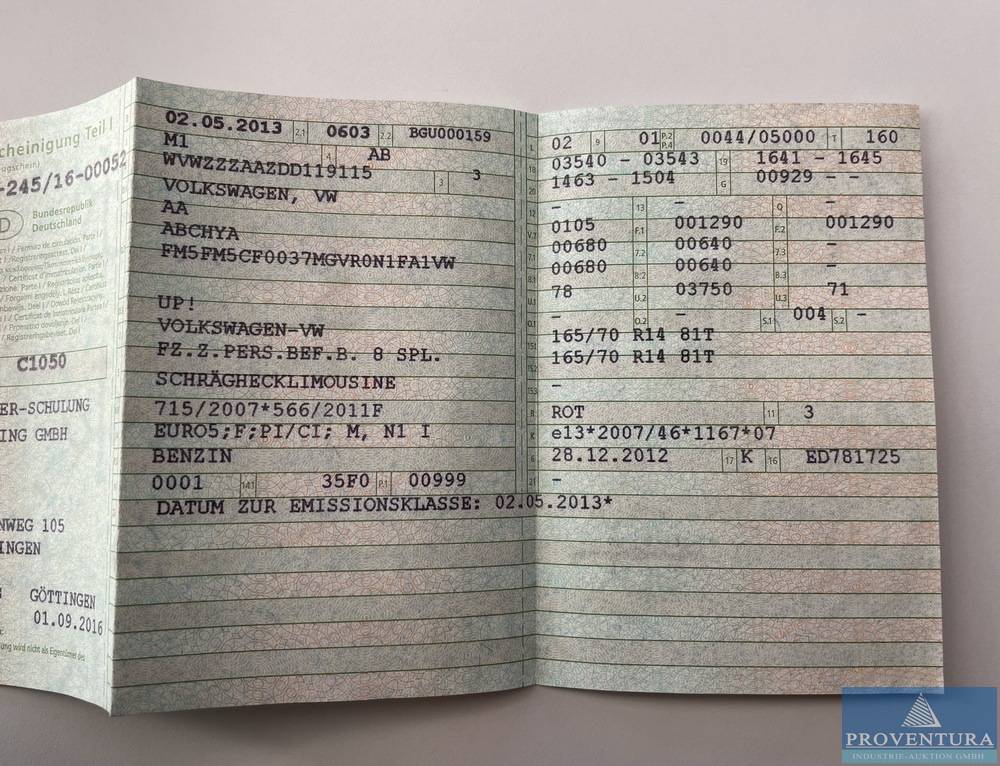 cheinigung Teil I
-245/16-00052
D
Bundesrepublik
Deutschland
C1050
ER-SCHULUNG
ING GMBH
NWEG 105
INGEN
GÖTTINGEN
01.09.2016
ung wird nicht als Eigentümer des
02.05.2013 2.1 0603 2.2 BGU000159
M1 4 AB
WVWZZZAAZDD119115 3 3
VOLKSWAGEN, VW
AA
ABCHYA
FM5FM5CF0037MGVR0N1FA1VW
UP!
VOLKSWAGEN-VW
FZ.Z.PERS.BEF.B. 8 SPL.
SCHRÄGHECKLIMOUSINE
715/2007*566/2011F
EURO5;F;PI/CI; M, N1 I
BENZIN
0001 14.1 35F0 P.1 00999
DATUM ZUR EMISSIONSKLASSE: 02.05.2013*
L 02 9 01 P.2 P.4 0044/05000 T 160
18 03540 - 03543 19 1641 - 1645
20 1463 - 1504 G 00929 - -
12 - 13 - Q -
V.7 0105 F.1 001290 F.2 001290
7.1 00680 7.2 00640 7.3 -
8.1 00680 8.2 00640 8.3 -
U.1 78 U.2 03750 U.3 71
O.1 - O.2 - S.1 004 S.2 -
15.1 165/70 R14 81T
15.2 165/70 R14 81T
15.3 -
R ROT 11 3
K e13*2007/46*1167*07
6 28.12.2012 17 K 16 ED781725
21 -
PROVENTURA
INDUSTRIE-AUKTION GMBH